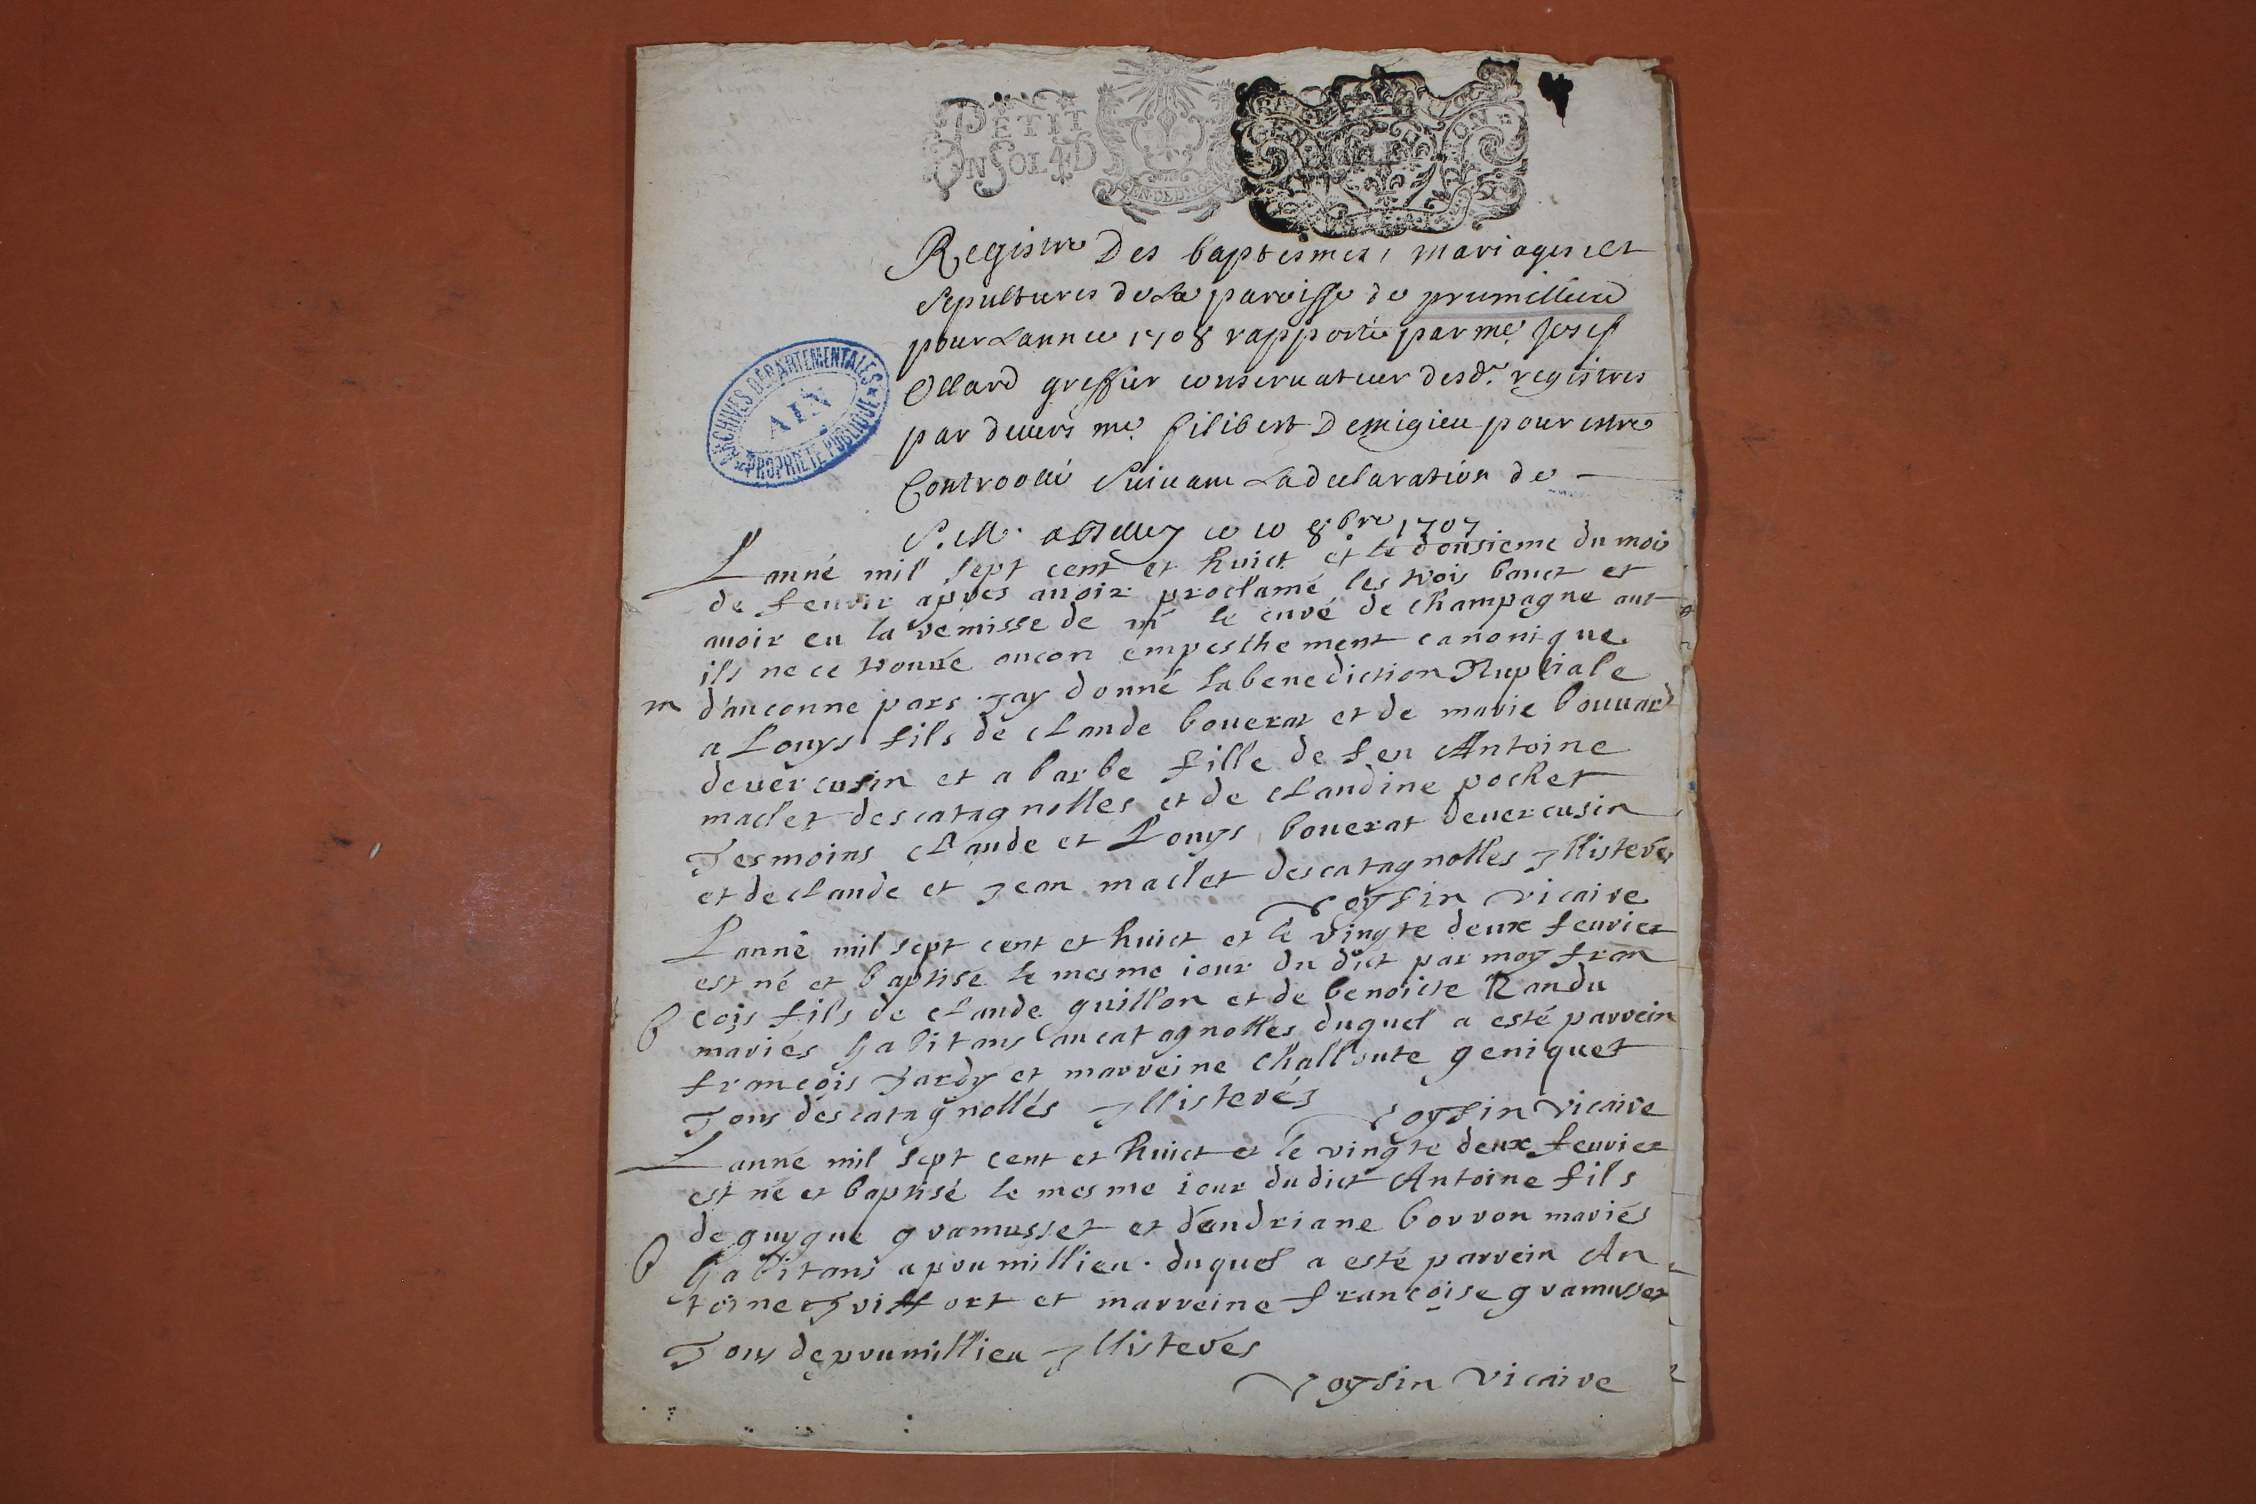 PETIT
UN SOL 4 D
GEN DE DIION
ARCHIVES DÉPARTEMENTALES
AIN
PROPRIÉTÉ PUBLIQUE
Registre Des baptesmes, mariages et
Sepultures de la paroisse de prumillieu
pour Lannee 1708 rapporté par me. Josef
Ollard greffier conservateur desd. registres
par devers me. filibert Demigieu pour estre
Controollé Suivant La declaration de
S. M. a Belley ce 10 8bre 1707
Lanné mil sept cent et huict et le dousieme du mois
de fevrir apres avoir proclamé les trois banct et
avoir eu la remisse de mr le curé de champagne aut
ils ne ce trouvé aucon empesthement canonique
m d'auconne pars Jay donné la benediction Nuptiale
a Louys fils de claude boverat et de marie bouvard
devercusin et a barbe fille de feu Antoine
maclet descatagnolles et de claudine pochet
Tesmoins claude et Louys boverat devercusin
et de claude et Jean maclet descatagnolles Jllisterés
Voysin vicaire
Lanné mil sept cent et huict et le vingte deux fevrier
est né et baptisé le mesme iour du dict par moy fran
B cois fils de claude guillon et de benoicte Randu
mariés habitans au catagnolles duquel a esté parrein
francois Jardy et marreine Challoute geniquet
Tous descatagnollés Jllisterés
Voysin vicaire
Lanné mil sept cent et huict et le vingte deux fevrier
est né et baptisé le mesme iour du dict Antoine fils
de guygue gramusset et d'andriane borron mariés
B habitans a prumillieu. duquel a esté parrein An
toine Triffort et marreine francoise gramusset
Tous de prumillieu Jllisterés
Voysin vicaire